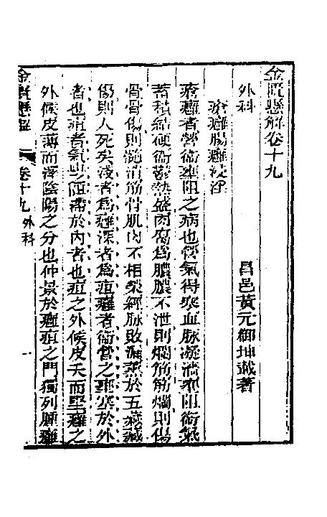 金匱懸解卷十九
外科
昌邑黃元御坤載著
瘡癰腸癰浸淫
瘡癰者營衛壅阻之病也營氣得寒血脈凝濇壅阻衛氣
蓄積結硬衛鬱熱盛肉腐爲膿膿不泄則爛筋筋爛則傷
骨骨傷則髓消筋骨肌肉不相榮經脈敗漏薰於五臟臟
傷則人死矣淺者爲癰深者爲疽癰者衛營之壅塞於外
者也疽者氣血之阻滯於內者也疽之外候皮夭而堅癰之
外候皮薄而澤陰陽之分也仲景於癰疽之門獨列腸癰
金匱懸解 卷十九 外科 一